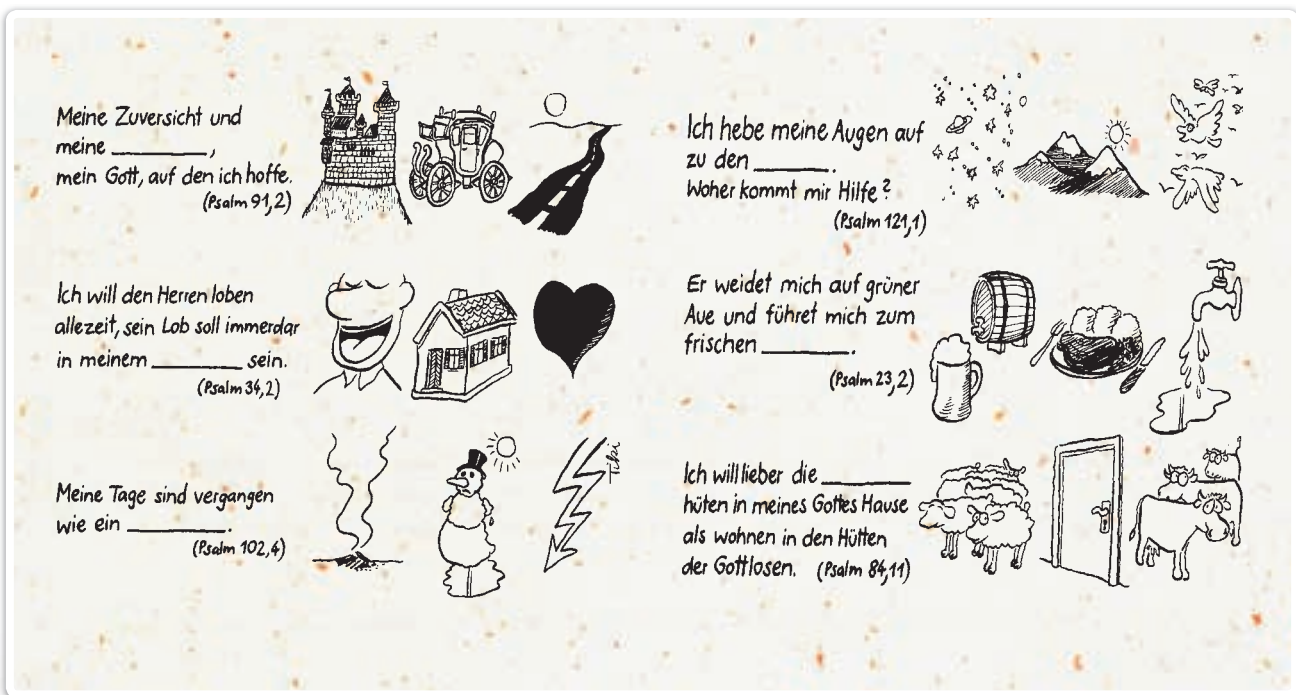 Meine Zuversicht und
meine ________,
mein Gott, auf den ich hoffe.
(Psalm 91,2)
Ich will den Herren loben
allezeit, sein Lob soll immerdar
in meinem ________ sein.
(Psalm 34,2)
Meine Tage sind vergangen
wie ein ________.
(Psalm 102,4)
Tiki
Ich hebe meine Augen auf
zu den ________.
Woher kommt mir Hilfe?
(Psalm 121,1)
Er weidet mich auf grüner
Aue und führet mich zum
frischen ________.
(Psalm 23,2)
Ich will lieber die ________
hüten in meines Gottes Hause
als wohnen in den Hütten
der Gottlosen. (Psalm 84,11)